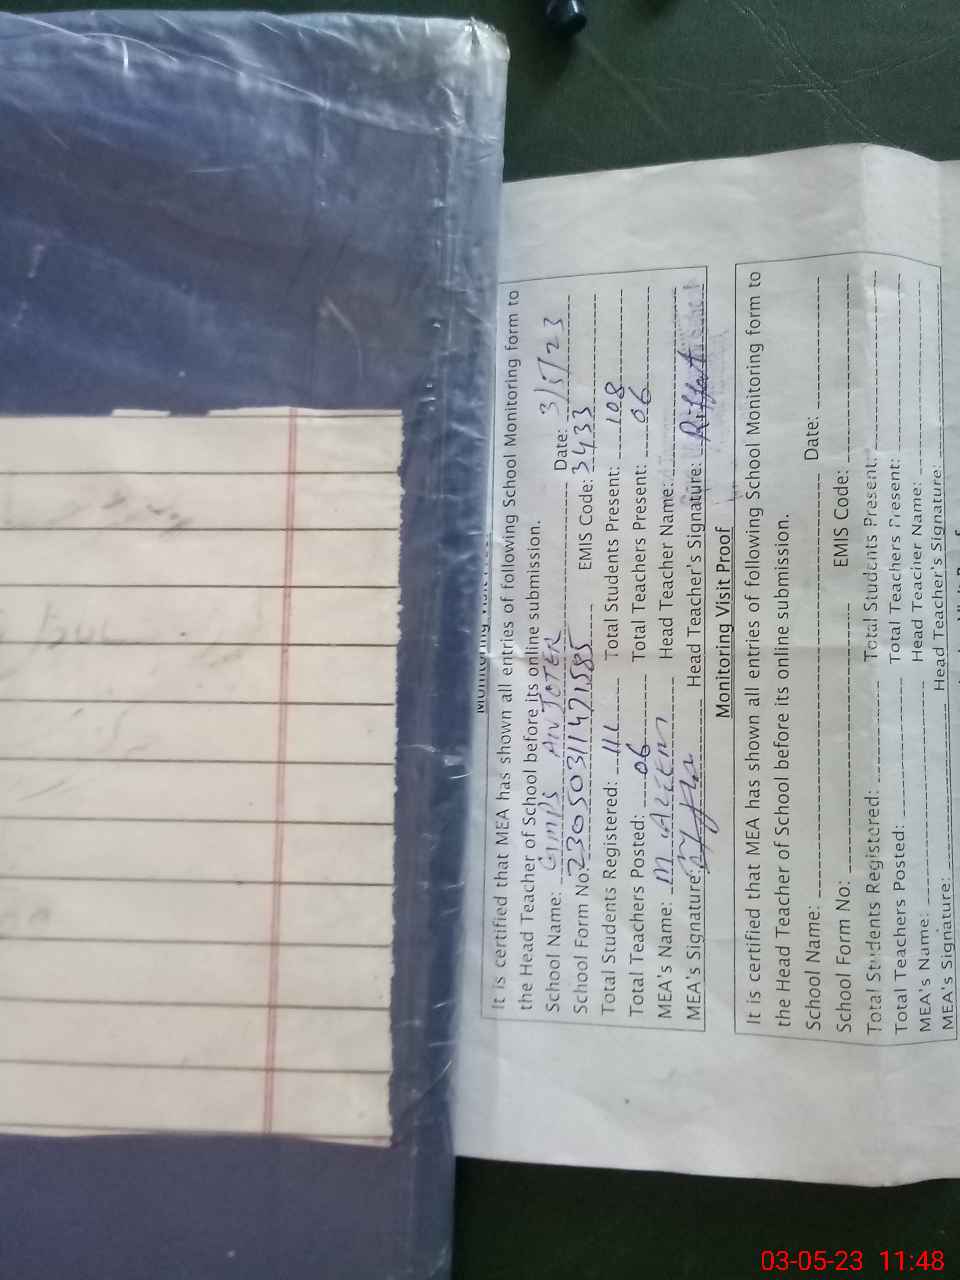 It is certified that MEA has shown all entries of following School Monitoring form to
the Head Teacher of School before its online submission.
School Name: GMPS Date: 3/5/23
School Form No: 23050311471585 EMIS Code: 3433
Total Students Registered: 111 Total Students Present: 108
Total Teachers Posted: 06 Total Teachers Present: 06
MEA's Name: M. ALEEM Head Teacher Name:
MEA's Signature: Head Teacher's Signature: Riffat
Monitoring Visit Proof
It is certified that MEA has shown all entries of following School Monitoring form to
the Head Teacher of School before its online submission.
School Name: Date:
School Form No: EMIS Code:
Total Students Registered: Total Students Present:
Total Teachers Posted: Total Teachers Present:
MEA's Name: Head Teacher Name:
MEA's Signature: Head Teacher's Signature:
03-05-23 11:48